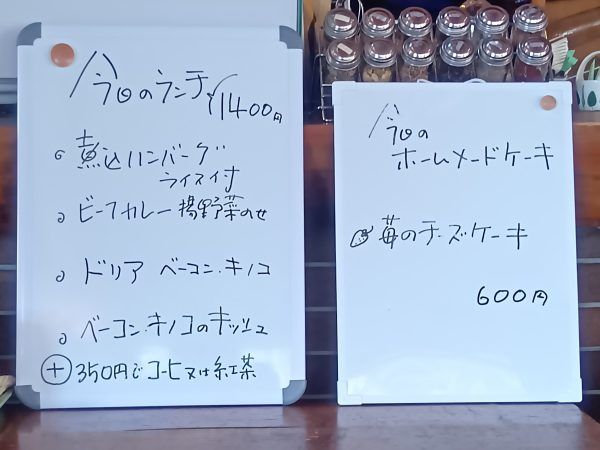 今日のランチ ¥1400円
煮込ハンバーグ
ライス付
ビーフカレー 揚野菜のせ
ドリア ベーコン.キノコ
ベーコン.キノコのキッシュ
+ 350円でコーヒ又は紅茶
今日の
ホームメードケーキ
苺のチーズケーキ
600円